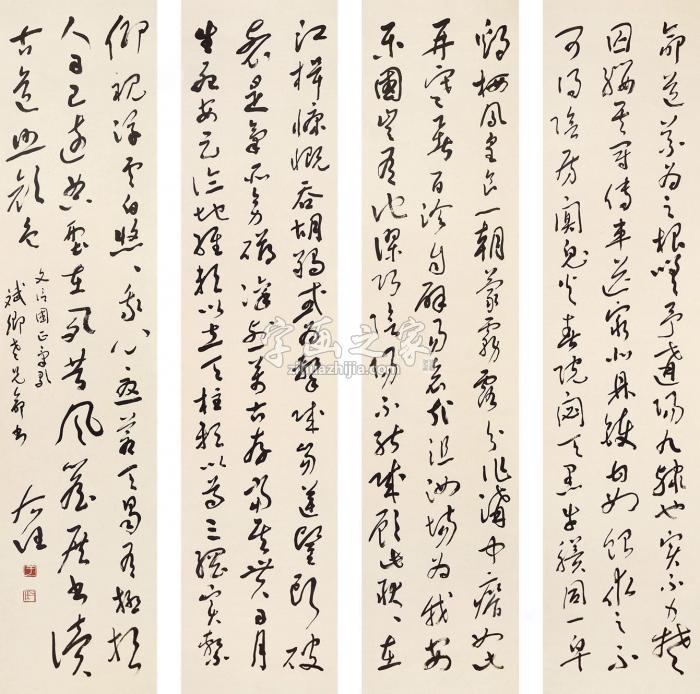 命道義為之根嗟予遘陽九隸也實不力楚
囚纓其冠傳車送窮北鼎鑊甘如飴求之不
可得陰房闃鬼火春院閟天黑牛驥同一皁
雞棲鳳凰食一朝蒙霧露分作溝中瘠如此
再寒暑百沴自辟易哀哉沮洳場為我安
樂國豈有他謬巧陰陽不能賊顧此耿〻在
江楫慷慨吞胡羯或為擊賊笏逆豎頭破
裂是氣所旁薄凜烈萬古存當其貫日月
生死安足論地維賴以立天柱賴以尊三綱實繫
仰視浮雲白悠〻我心悲蒼天曷有極哲
人日已遠典型在夙昔風簷展書讀
古道照顏色
文信國正氣歌
斌卿老兄命書
右任
字画之家
zihuazhijia.com